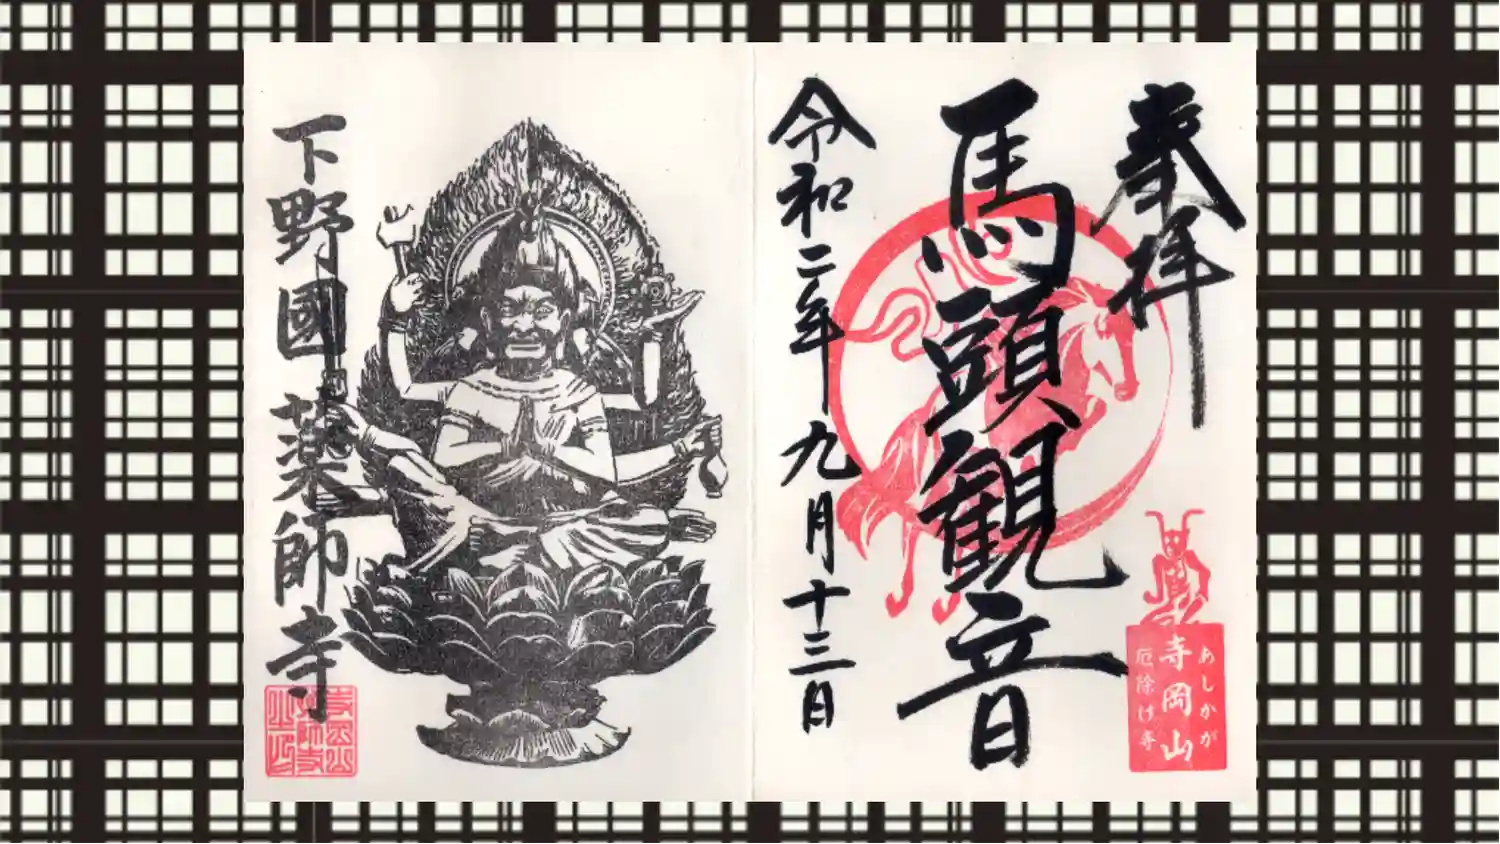 奉拝
馬頭観音
令和二年九月十三日
あしかが
寺岡山
厄除け寺
下野國薬師寺